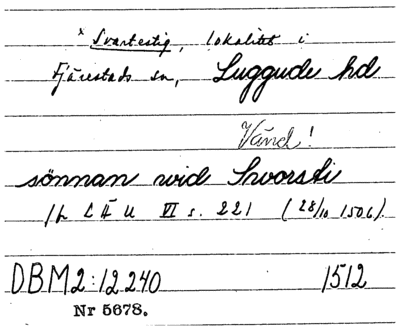 × Svartestig, lokalitet i
Fjärestads sn, Luggude hd
Vänd!
sönnan wid Sworsti
/L Ä U VI s. 221 (28/10 1506).
DBM2:12240 1512
Nr 5678.